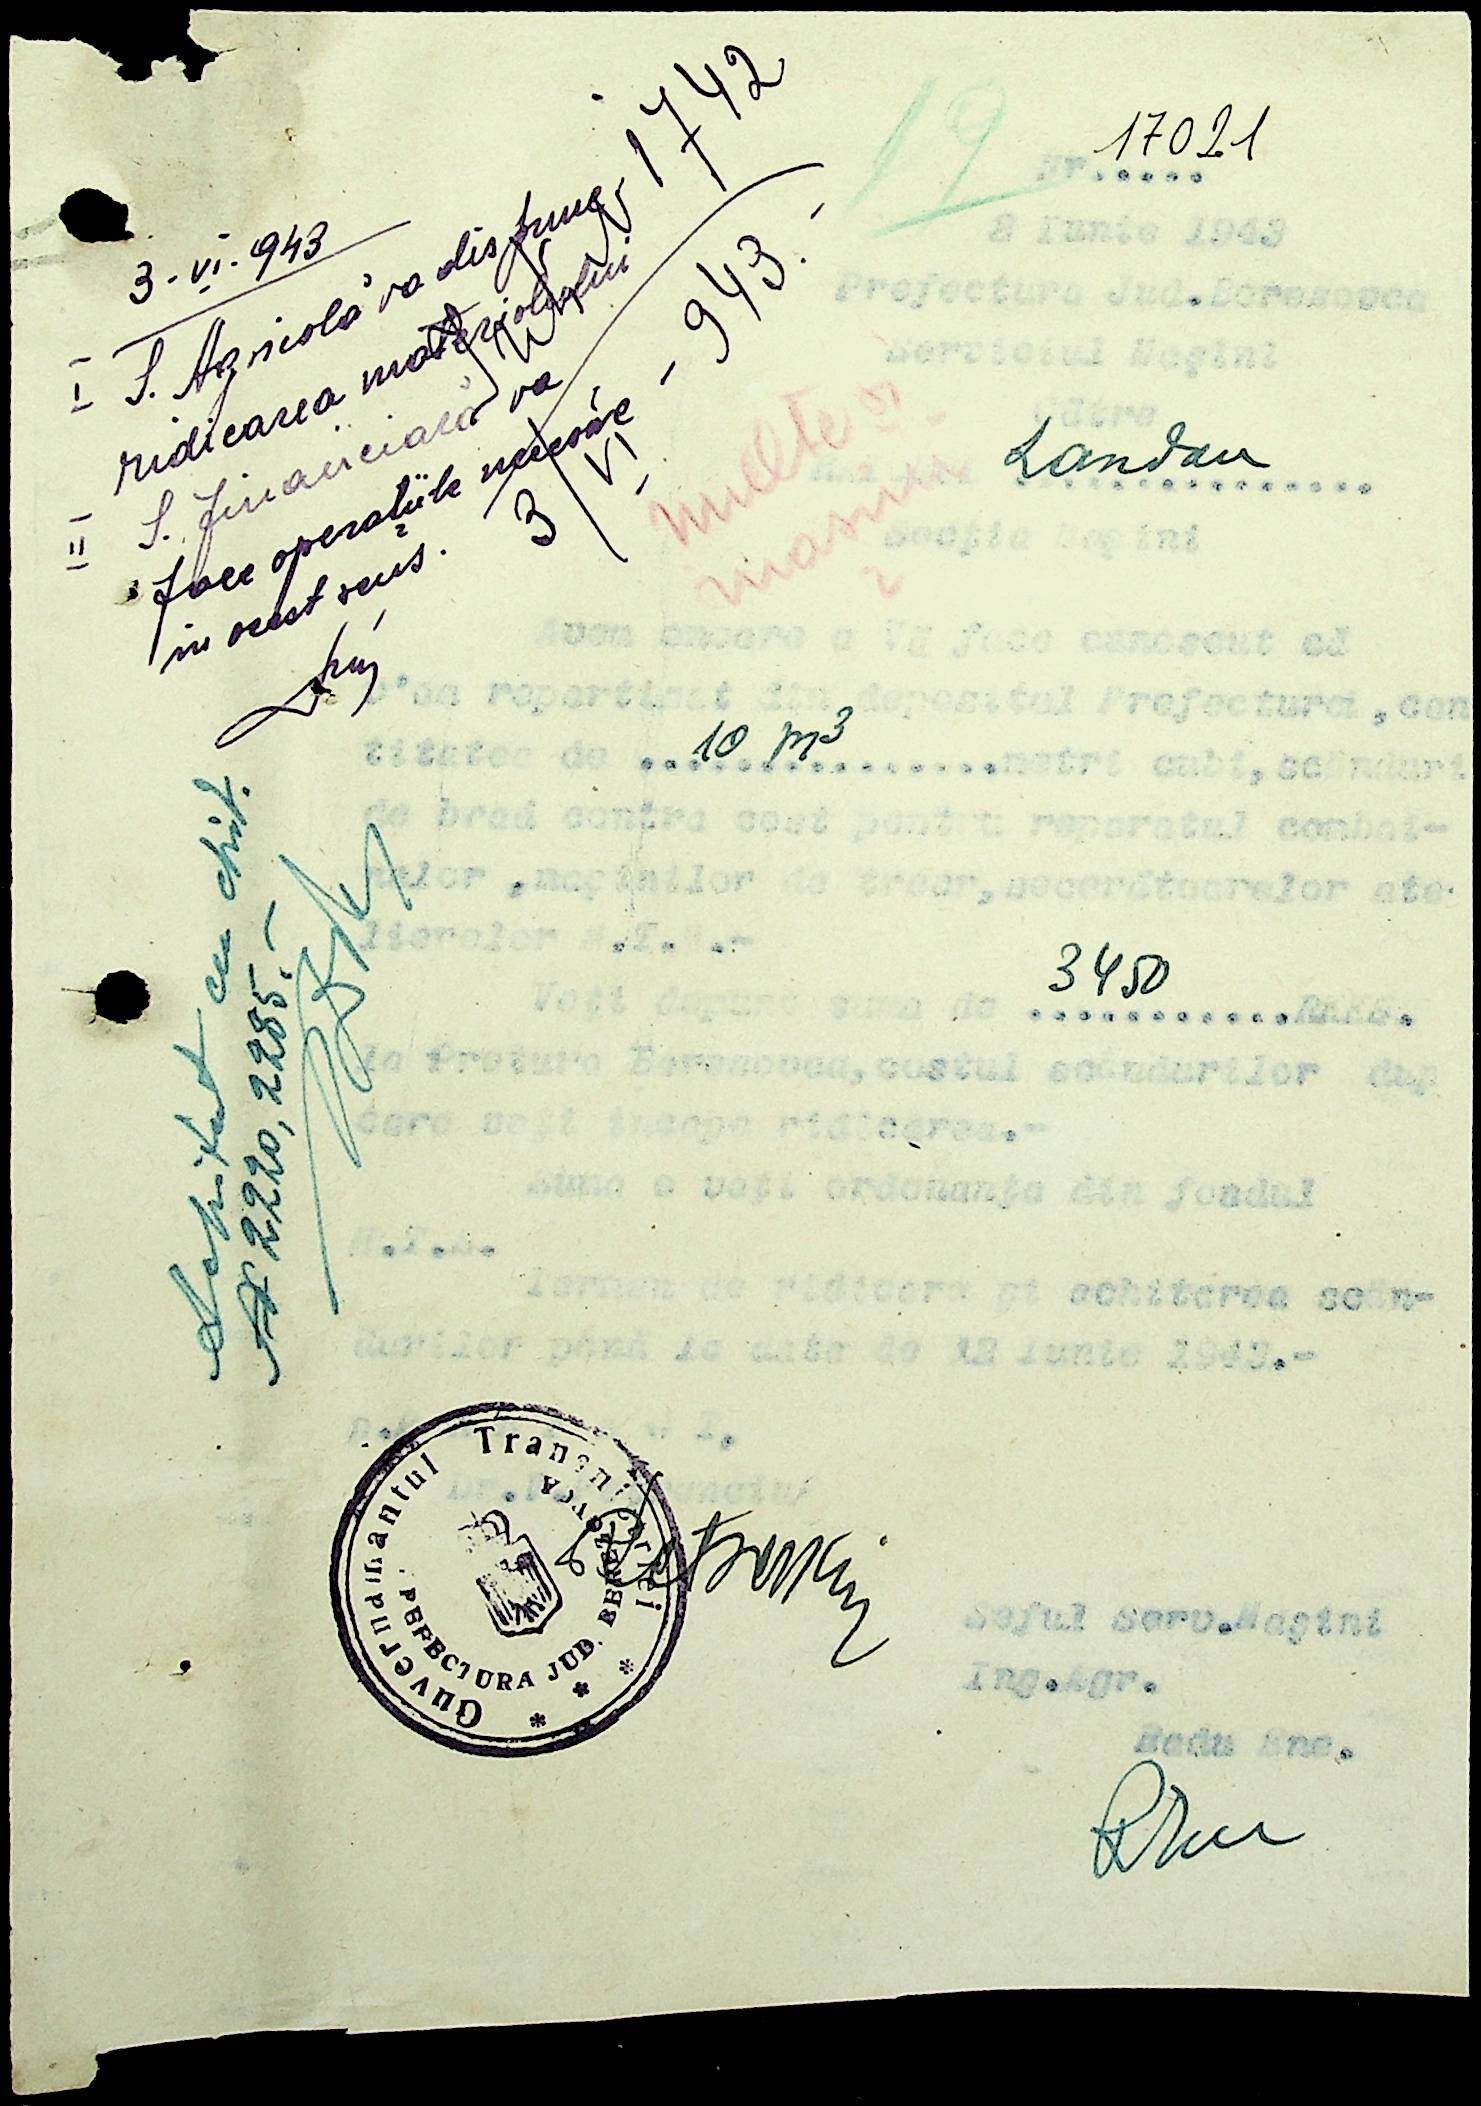 1742
19
Nr. 17021
2 Iunie 1943
Prefectura Jud. Beresovca
Serviciul Mașini
Către
Landau
Secția Mașini
3-VI-943
I S. Agricolă va dispune
ridicarea materialului
II S. Financiară va
face operațiile necesare
in acest sens.
3/VI - 943.-
Avem onoare a Vă face cunoscut că
s'au repartizat din depozitul Prefecturei, can
titatea de 10 m3 metri cubi, scânduri
de brad contra cost pentru reparatul combai-
nelor, mașinilor de treer, secerătoarelor ate
lierelor
Veți depune suma de 3450 RKKS.
la Pretura Beresovca, costul scândurilor dup
care veți începe ridicarea.-
Suma o veți ordonanța din fondul
Termen de ridicare și achitarea scân-
durilor până la data de 12 Iunie 1943.-
Achitat cu chit.
№ 2220, 2285.-
Guvernământul Transnistriei
PREFECTURA JUD. BEREZOVCA
Șeful Serv. Mașini
Ing. Agr.
Radu Ene.